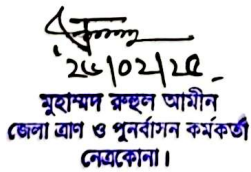 ২৫/০২/২৫
মুহাম্মদ রুহুল আমীন
জেলা ত্রাণ ও পুনর্বাসন কর্মকর্তা
নেত্রকোনা।